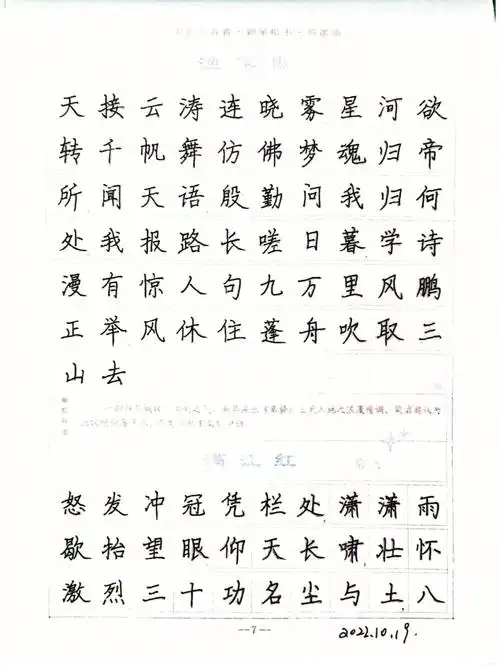 天接云涛连晓雾星河欲
转千帆舞仿佛梦魂归帝
所闻天语殷勤问我归何
处我报路长嗟日暮学诗
漫有惊人句九万里风鹏
正举风休住蓬舟吹取三
山去
满江红
怒发冲冠凭栏处潇潇雨
歇抬望眼仰天长啸壮怀
激烈三十功名尘与土八
—7—
2022.10.19.